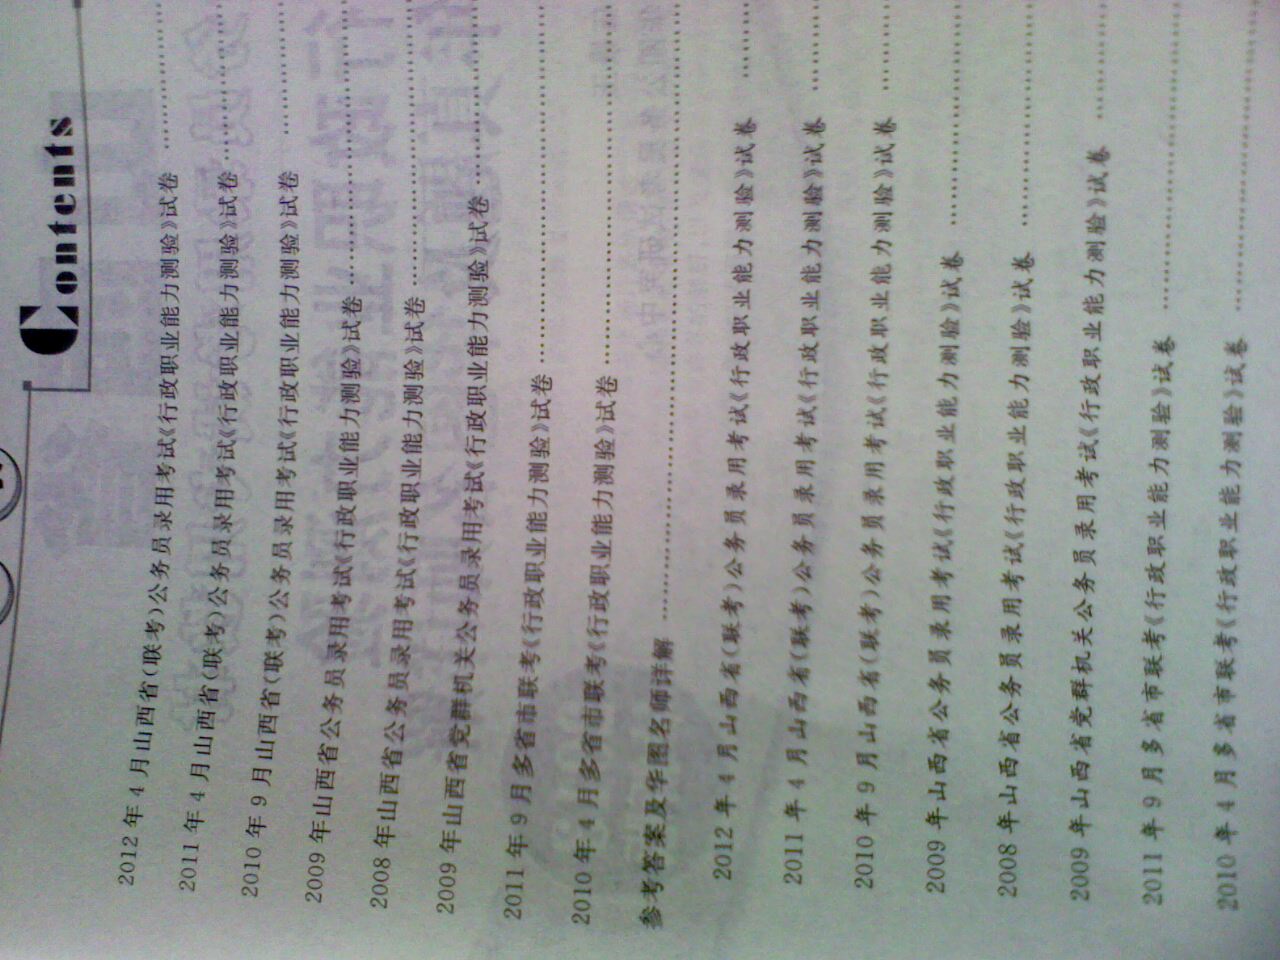 Contents
2012 年 4 月山西省(联考)公务员录用考试《行政职业能力测验》试卷
2011 年 4 月山西省(联考)公务员录用考试《行政职业能力测验》试卷
2010 年 9 月山西省(联考)公务员录用考试《行政职业能力测验》试卷
2009 年山西省公务员录用考试《行政职业能力测验》试卷
2008 年山西省公务员录用考试《行政职业能力测验》试卷
2009 年山西省党群机关公务员录用考试《行政职业能力测验》试卷
2011 年 9 月多省市联考《行政职业能力测验》试卷
2010 年 4 月多省市联考《行政职业能力测验》试卷
参考答案及华图名师详解
2012 年 4 月山西省(联考)公务员录用考试《行政职业能力测验》试卷
2011 年 4 月山西省(联考)公务员录用考试《行政职业能力测验》试卷
2010 年 9 月山西省(联考)公务员录用考试《行政职业能力测验》试卷
2009 年山西省公务员录用考试《行政职业能力测验》试卷
2008 年山西省公务员录用考试《行政职业能力测验》试卷
2009 年山西省党群机关公务员录用考试《行政职业能力测验》试卷
2011 年 9 月多省市联考《行政职业能力测验》试卷
2010 年 4 月多省市联考《行政职业能力测验》试卷